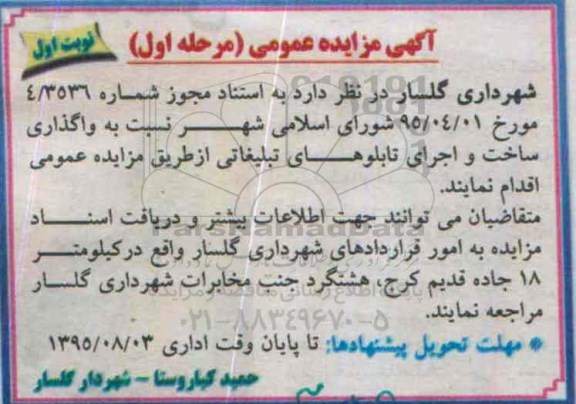 آگهی مزایده عمومی (مرحله اول)
نوبت اول
شهرداری گلسار در نظر دارد به استناد مجوز شماره ۴/۳۵۳۶
مورخ ۹۵/۰۴/۰۱ شورای اسلامی شهر نسبت به واگذاری
ساخت و اجرای تابلوهای تبلیغاتی ازطریق مزایده عمومی
اقدام نمایند.
متقاضیان می توانند جهت اطلاعات بیشتر و دریافت اسناد
مزایده به امور قراردادهای شهرداری گلسار واقع درکیلومتر
۱۸ جاده قدیم کرج، هشتگرد جنب مخابرات شهرداری گلسار
مراجعه نمایند.
* مهلت تحویل پیشنهادها: تا پایان وقت اداری ۱۳۹۵/۰۸/۰۳
حمید کیاروستا – شهردار گلسار
ParsNamadData
۰۲۱-۸۸۳۴۹۶۷۰-۵